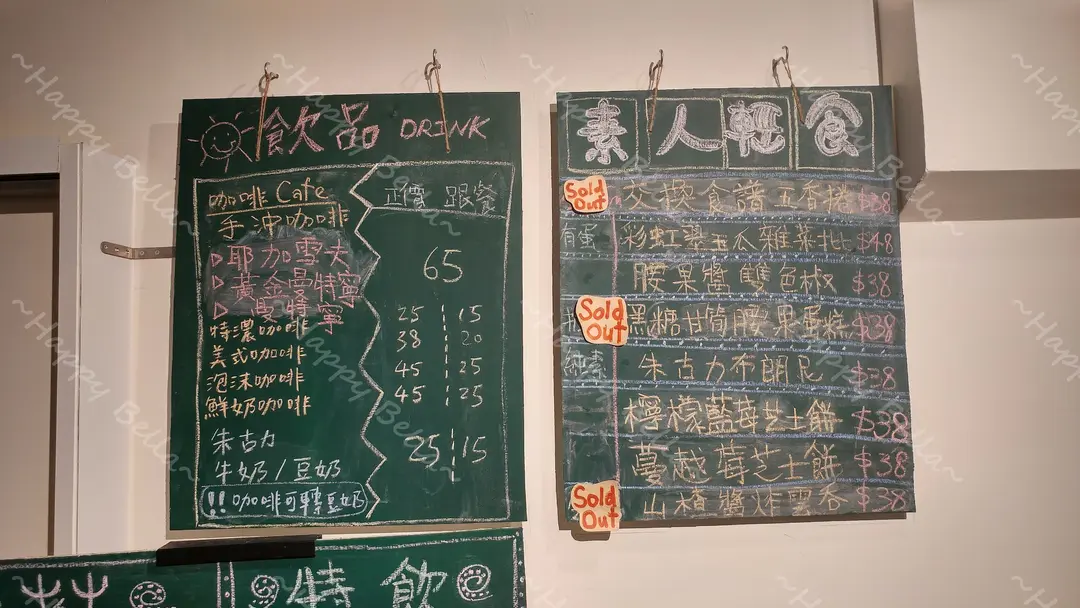 飲品 DRINK
咖啡 Cafe
正價 跟餐
手沖咖啡
耶加雪夫
黃金曼特寧
曼特寧
65
特濃咖啡 25 15
美式咖啡 38 20
泡沫咖啡 45 25
鮮奶咖啡 45 25
朱古力
牛奶/豆奶
25 15
!! 咖啡可轉豆奶
素人輕食
Sold Out
交換食譜五香捲 $38
有蛋 彩虹翠玉瓜雜菜批 $48
腰果醬雙色椒 $38
Sold Out
黑糖甘筍腰果蛋糕 $38
純素 朱古力布朗尼 $38
檸檬藍莓芝士餅 $38
蔓越莓芝士餅 $38
Sold Out
山楂醬炸雲吞 $38
特飲
~Happy Bella~